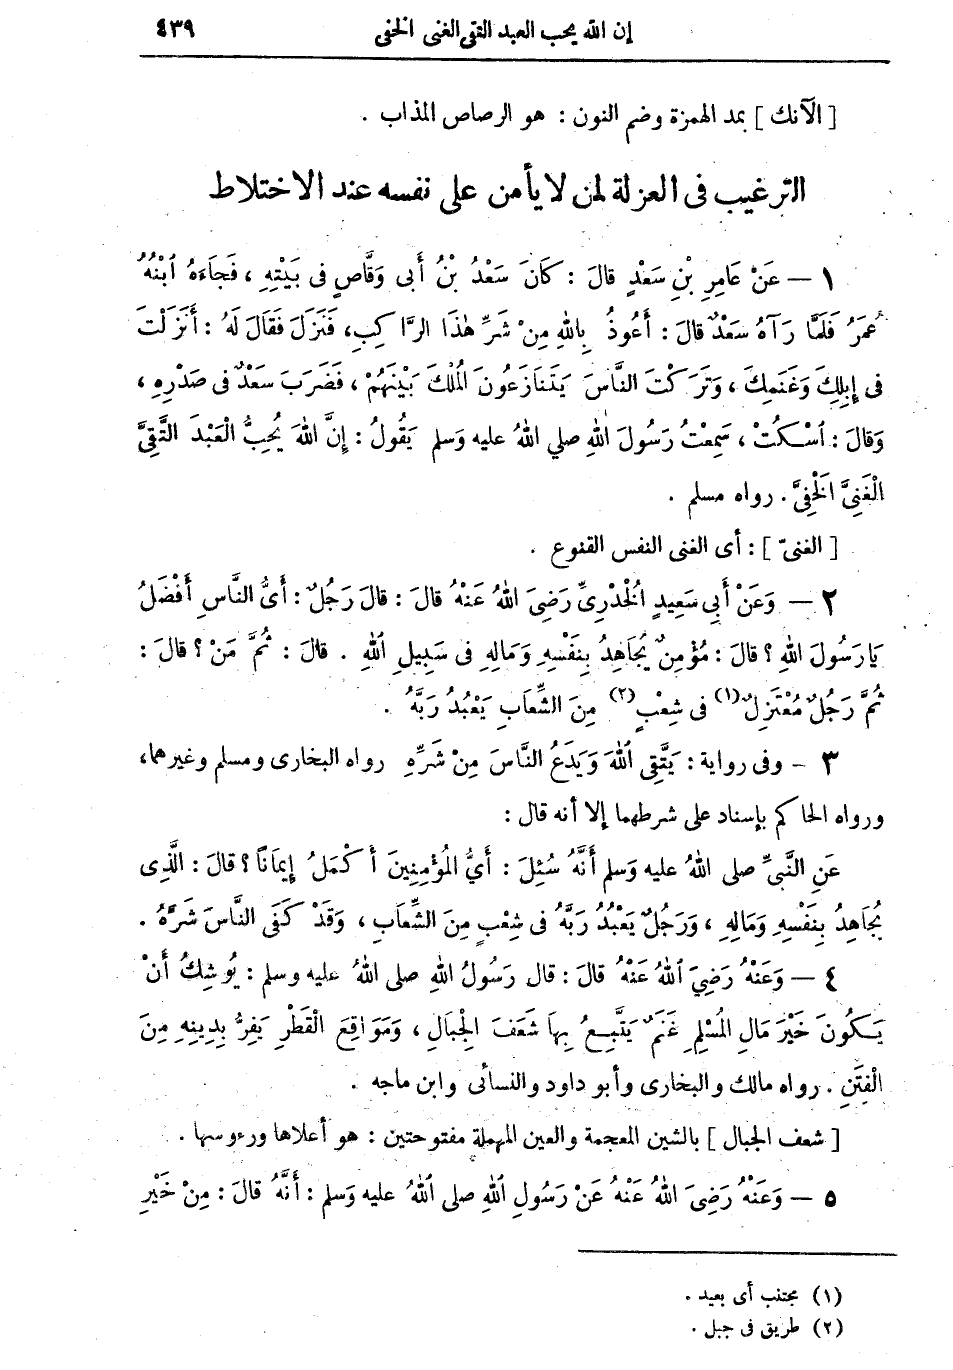 إن الله يحب العبد التقى الغنى الخفى ٤٣٩
[ الآنك ] بمد الهمزة وضم النون : هو الرصاص المذاب .
الترغيب فى العزلة لمن لا يأمن على نفسه عند الاختلاط
١ — عَنْ عَامِرِ بْنِ سَعْدٍ قالَ : كَانَ سَعْدُ بْنُ أَبى وَقَّاصٍ فى بَيْتِهِ ، فَجَاءَهُ ٱبْنُهُ
عُمَرُ فَلَمَّا رَآهُ سَعْدٌ قالَ : أَعُوذُ بِاللهِ مِنْ شَرِّ هٰذَا الرَّاكِبِ، فَنَزَلَ فَقَالَ لَهُ : أَنَزَلْتَ
فى إِبِلِكَ وَغَنَمِكَ ، وَتَرَكْتَ النَّاسَ يَتَنَازَعُونَ الْمُلْكَ بَيْنَهُمْ ، فَضَرَبَ سَعْدٌ فى صَدْرِهِ ،
وَقالَ : ٱسْكُتْ ، سَمِعْتُ رَسُولَ اللهِ صلى اللهُ عليه وَسلم يَقُولُ : إِنَّ اللهَ يُحِبُّ الْعَبْدَ التَّقِىَّ
الْغَنِىَّ الْخَفِىَّ . رواه مسلم .
[ الغنىّ ] : أى الغنى النفس القنوع .
٢ — وَعَنْ أَبِى سَعِيدٍ الْخُدْرِىِّ رَضِىَ اللهُ عَنْهُ قالَ : قالَ رَجُلٌ : أَىُّ النَّاسِ أَفْضَلُ
يَارَسُولَ اللهِ ؟ قالَ : مُؤْمِنٌ يُجَاهِدُ بِنَفْسِهِ وَمَالِهِ فى سَبِيلِ ٱللهِ . قالَ : ثُمَّ مَنْ ؟ قالَ :
ثُمَّ رَجُلٌ مُعْتَزِلٌ(١) فى شِعْبٍ(٢) مِنَ الشِّعَابِ يَعْبُدُ رَبَّهُ .
٣ - وفى رواية : يَتَّقِى ٱللهَ وَيَدَعُ النَّاسَ مِنْ شَرِّهِ رواه البخارى ومسلم وغيرهما،
ورواه الحاكم بإسناد على شرطهما إلا أنه قال :
عَنِ النَّبِىِّ صلى اللهُ عليه وَسلم أَنَّهُ سُئِلَ : أَىُّ الْمُؤْمِنِينَ أَكْمَلُ إِيمَانًا ؟ قالَ : الَّذِى
يُجَاهِدُ بِنَفْسِهِ وَمَالِهِ ، وَرَجُلٌ يَعْبُدُ رَبَّهُ فى شِعْبٍ مِنَ الشِّعَابِ ، وَقَدْ كَفَى النَّاسَ شَرَّهُ .
٤ — وَعَنْهُ رَضِىَ ٱللهُ عَنْهُ قالَ : قال رَسُولُ اللهِ صلى اللهُ عليه وسلم : يُوشِكُ أَنْ
يَكُونَ خَيْرَ مَالِ الْمُسْلِمِ غَنَمٌ يَتَّبِعُ بِهَا شَعَفَ الْجِبَالِ ، وَمَوَاقِعَ الْقَطْرِ يَفِرُّ بِدِينِهِ مِنَ
الْفِتَنِ . رواه مالك والبخارى وأبو داود والنسائى وابن ماجه .
[ شعف الجبال ] بالشين المعجمة والعين المهملة مفتوحتين : هو أعلاها ورءوسها .
٥ — وَعَنْهُ رَضِىَ اللهُ عَنْهُ عَنْ رَسُولِ اللهِ صلى ٱللهُ عليه وَسلم : أَنَّهُ قالَ : مِنْ خَيْرِ
(١) مجتنب أى بعيد .
(٢) طريق فى جبل .